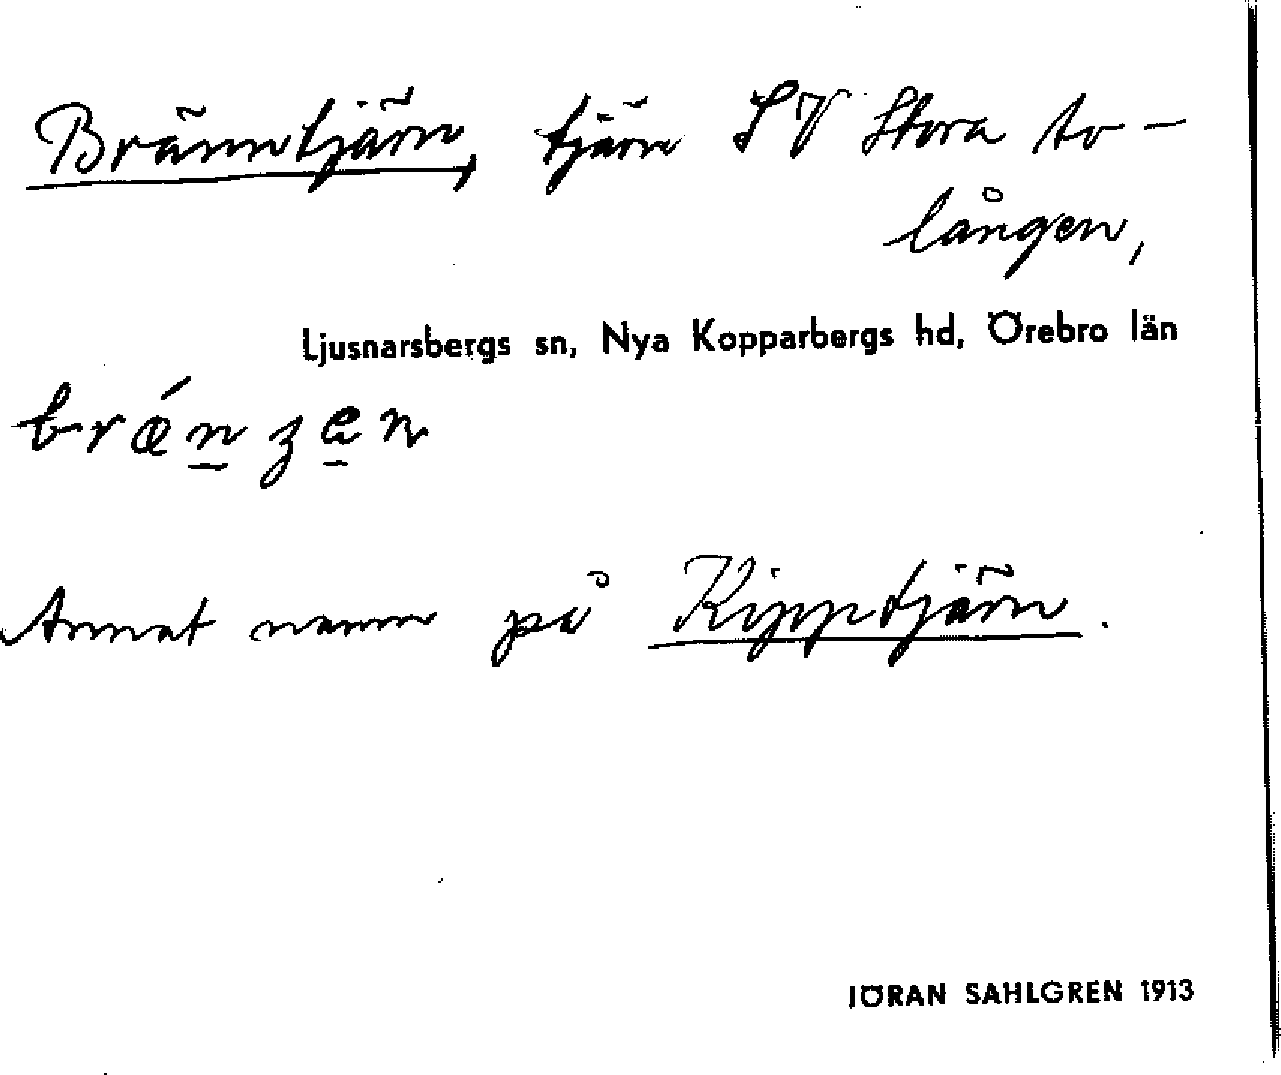 Bränntjärn, tjärn SV Stora to-
lången,
Ljusnarsbergs sn, Nya Kopparbergs hd, Örebro län
Annat namn på Kipptjärn.
JÖRAN SAHLGREN 1913